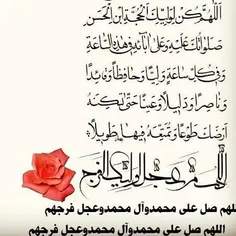 اَللّهُمَّ كُنْ لِوَلِيِّكَ الْحُجَّةِ ابْنِ الْحَسَنِ
صَلَواتُكَ عَلَيْهِ وَعَلى آبائِهِ في هذِهِ السّاعَةِ
وَفي كُلِّ ساعَةٍ وَلِيّاً وَحافِظاً وَقائِداً
وَناصِراً وَدَليلاً وَعَيْناً حَتّى تُسْكِنَهُ
اَرْضَكَ طَوْعاً وَتُمَتِّعَهُ فيها طَويلاً
اللهم عجل لوليك الفرج
للهم صل علی محمدوآل محمدوعجل فرجهم
اللهم صل علی محمدوآل محمدوعجل فرجهم